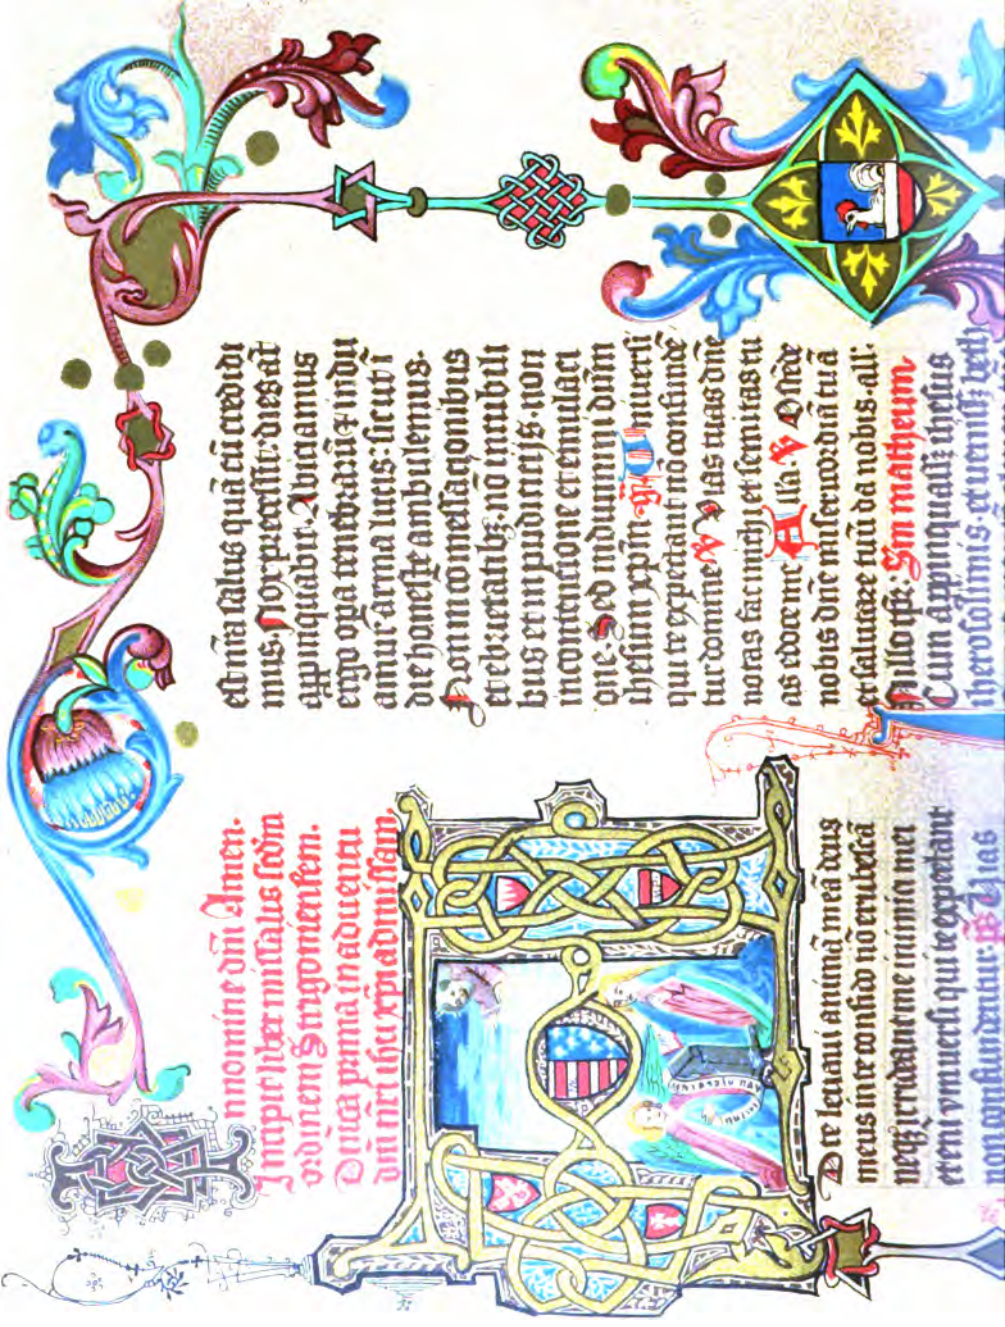 In nomine dñi Amen.
Incipit liber missalis scdm
ordinem Strigoniensem.
Dñica prima in aduentu
dñi nrĩ ihũ xpĩ ad missam.
Ad te leuaui animã meã deus
meus in te confido nõ erubescã
neqʒ irrideant me inimici mei
eteni vniuersi qui te expectant
non confundentur. Vias
est nr̃a salus quã cũ credidi
mus. Nox precessit: dies aũt
appropiquabit. Abiciamus
ergo oꝑa tenebrarũ: ⁊ indu
amur arma lucis: sicut in
die honeste ambulemus.
Non in comessacionibus
et ebrietatibʒ. nõ in cubili
bus et impudicicijs. non
in contencione et emulaci
one. Sed induimini dñm
ihesum xp̃m. Vniuersi
qui te expectant nõ confunde
tur domine. V Vias tuas dñe
notas fac michi: et semitas tu
as edoce me Alla. V Ostede
nobis dñe misericordiã tuã
et salutare tuũ da nobis. all'.
In illo tp̃r: Sm̃ matheum
Cum appinquassʒ ihesus
iherosolimis. et venissʒ beth